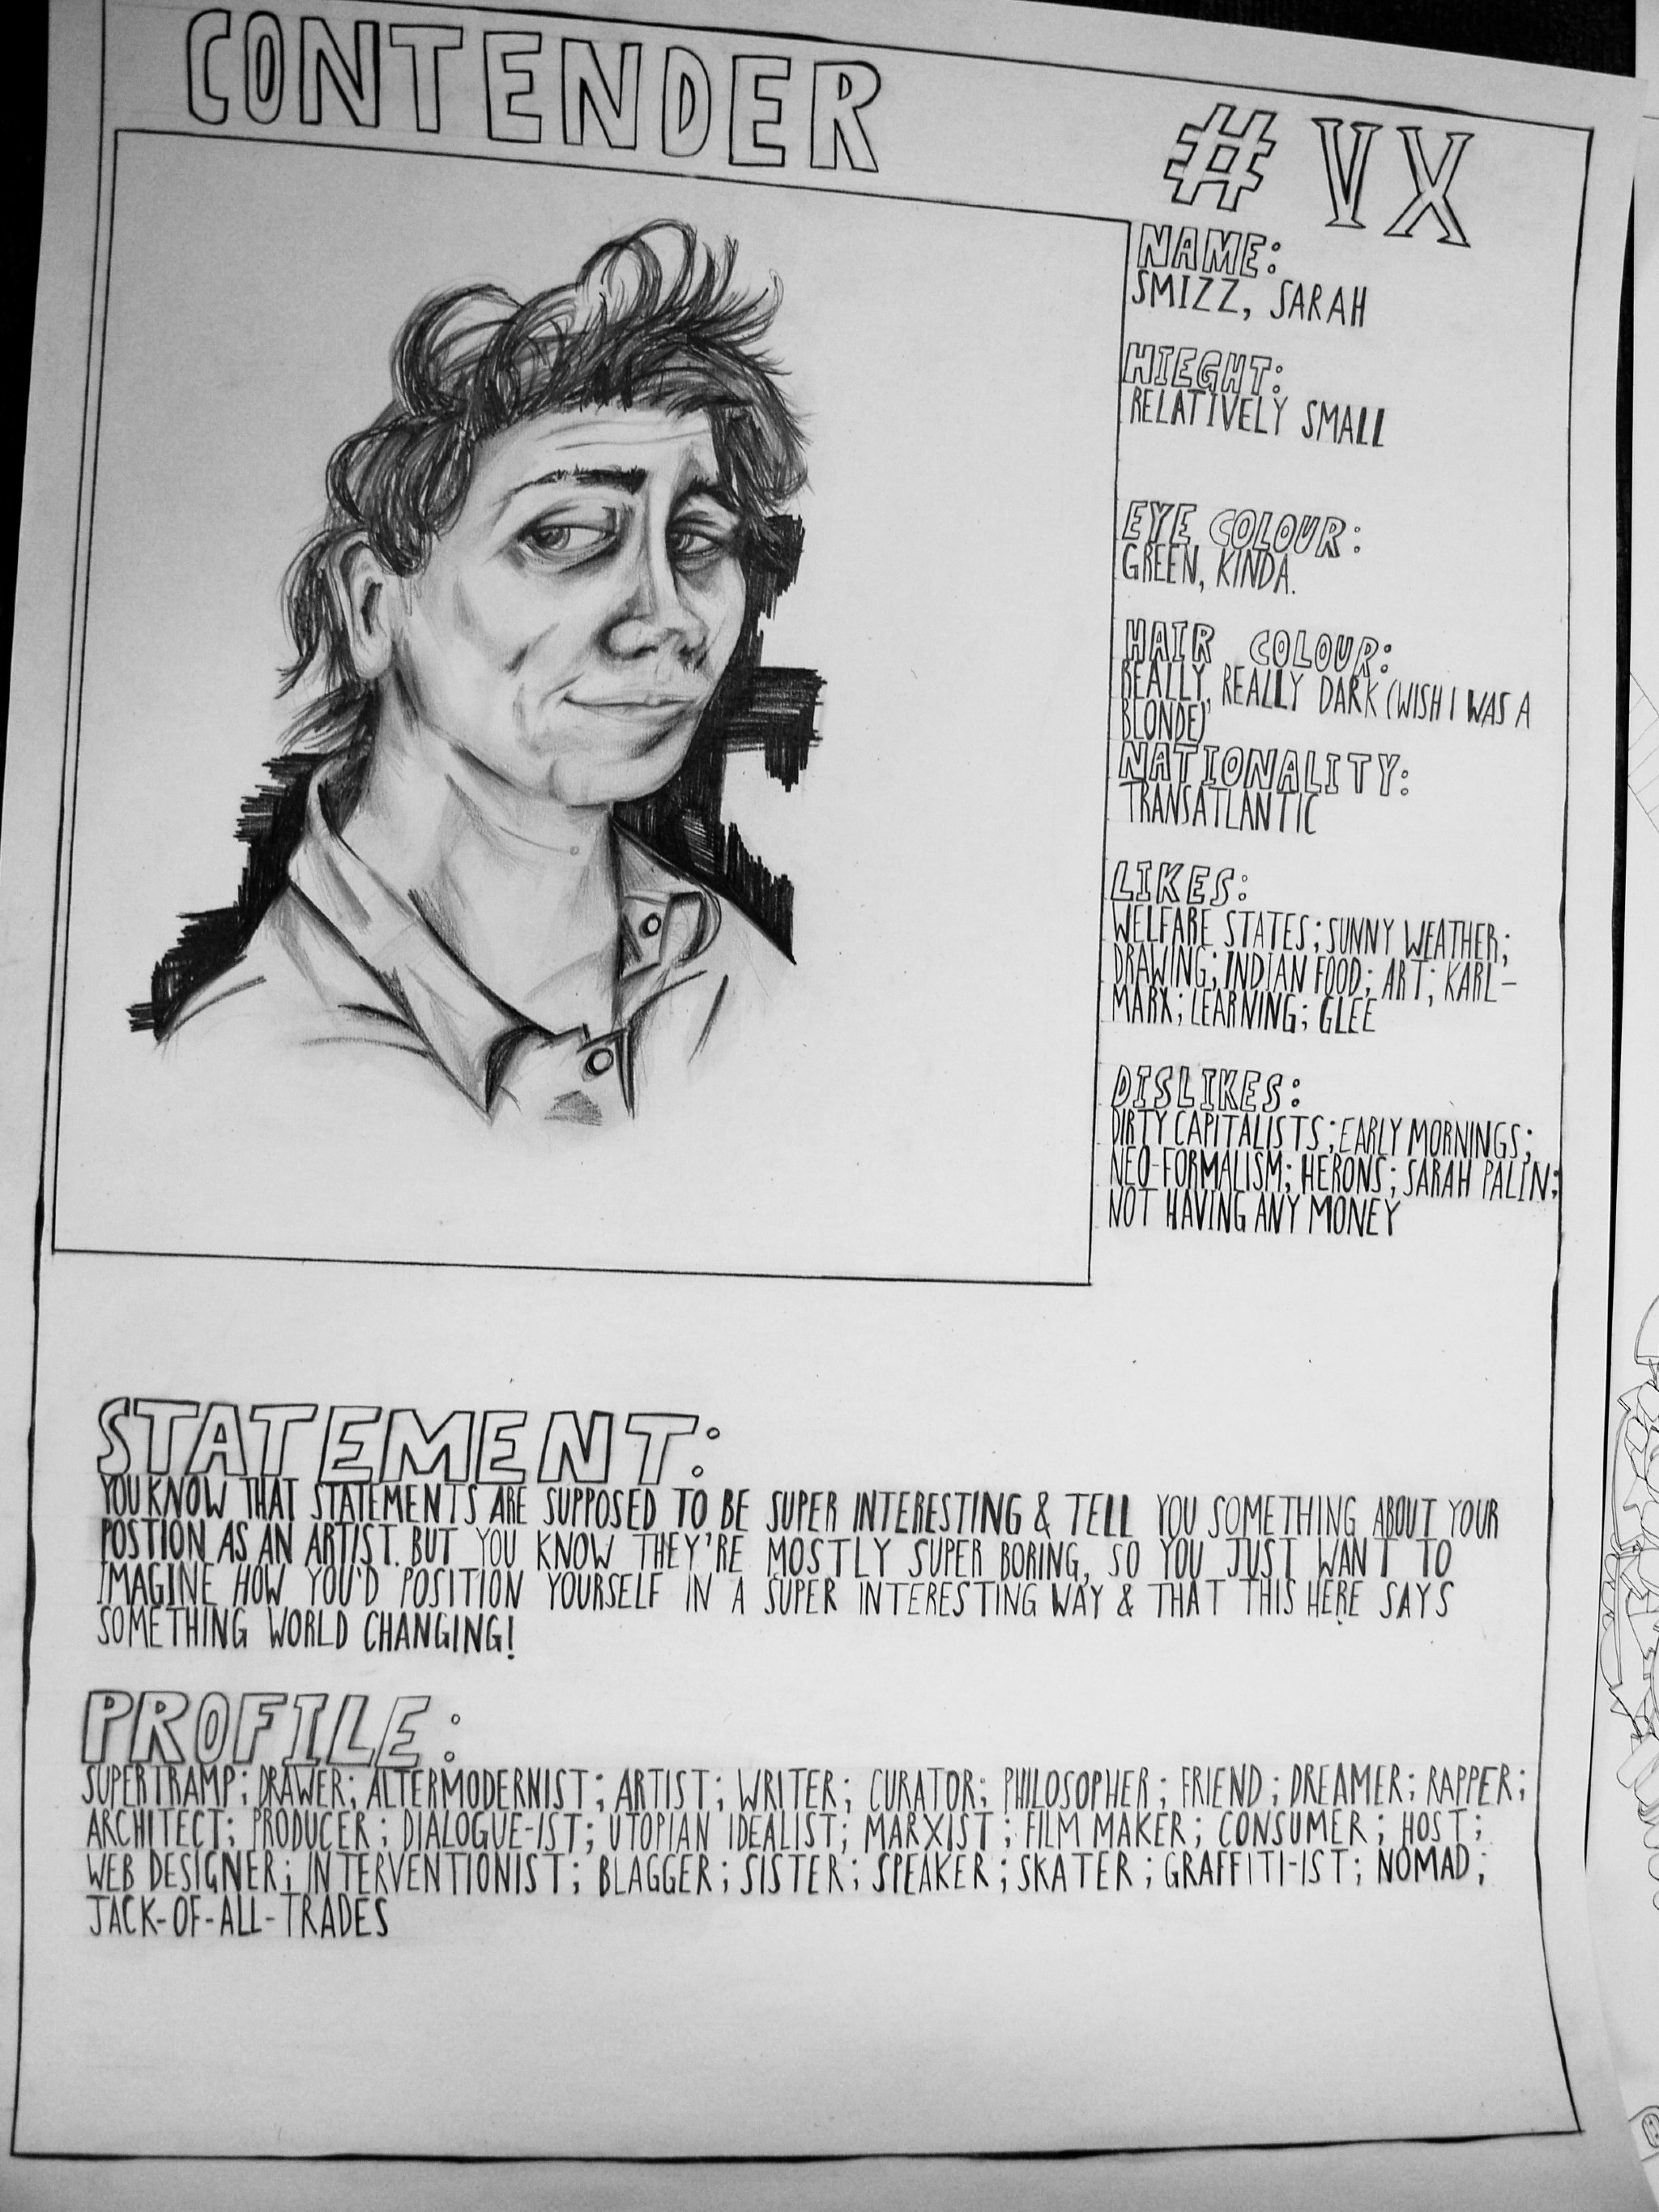 CONTENDER
# VX
NAME:
SMIZZ, SARAH
HIEGHT:
RELATIVELY SMALL
EYE COLOUR:
GREEN, KINDA.
HAIR COLOUR:
REALLY, REALLY DARK (WISH I WAS A
BLONDE)
NATIONALITY:
TRANSATLANTIC
LIKES:
WELFARE STATES; SUNNY WEATHER;
DRAWING; INDIAN FOOD; ART; KARL-
MARX; LEARNING; GLEE
DISLIKES:
DIRTY CAPITALISTS; EARLY MORNINGS;
NEO-FORMALISM; HERONS; SARAH PALIN;
NOT HAVING ANY MONEY
STATEMENT:
YOU KNOW THAT STATEMENTS ARE SUPPOSED TO BE SUPER INTERESTING & TELL YOU SOMETHING ABOUT YOUR
POSTION AS AN ARTIST. BUT YOU KNOW THEY'RE MOSTLY SUPER BORING, SO YOU JUST WANT TO
IMAGINE HOW YOU'D POSITION YOURSELF IN A SUPER INTERESTING WAY & THAT THIS HERE SAYS
SOMETHING WORLD CHANGING!
PROFILE:
SUPERTRAMP; DRAWER; ALTERMODERNIST; ARTIST; WRITER; CURATOR; PHILOSOPHER; FRIEND; DREAMER; RAPPER;
ARCHITECT; PRODUCER; DIALOGUE-IST; UTOPIAN IDEALIST; MARXIST; FILM MAKER; CONSUMER; HOST;
WEB DESIGNER; INTERVENTIONIST; BLAGGER; SISTER; SPEAKER; SKATER; GRAFFITI-IST; NOMAD;
JACK-OF-ALL-TRADES